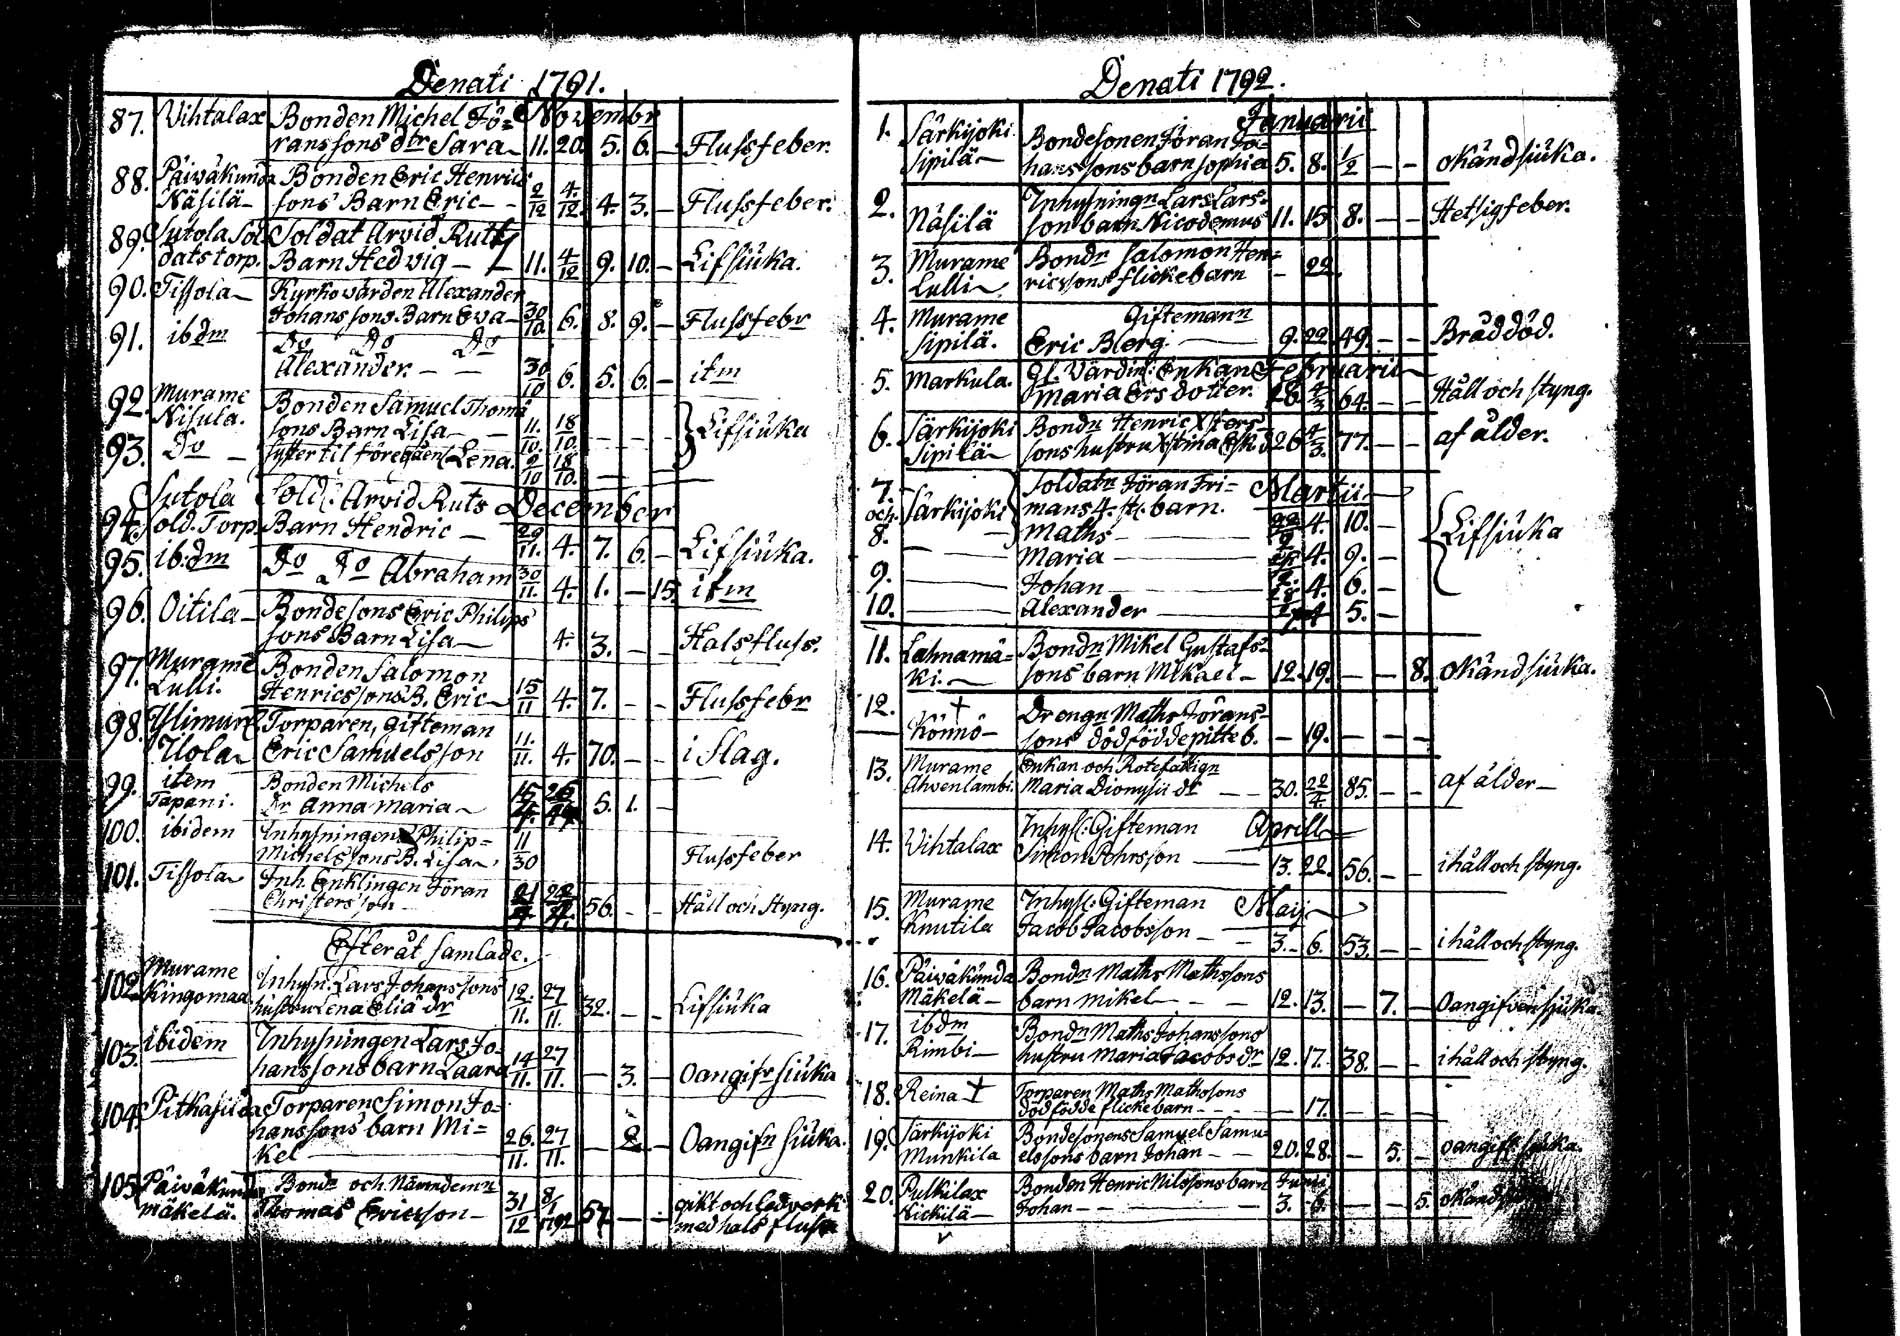 Denati 1791.
November
87. Vihtalax Bonden Michel Jö=
ranssons dtr Sara 11. 20. 5. 6. — Flussfeber.
88. Päiwäkunda Bonden Eric Henrics
Näsilä sons Barn Eric 2/12 4/12. 4. 3. — Flussfeber.
89. Sutola Sol Soldat Arvid Ruts
dats torp. Barn Hedvig 11. 4/12 9. 10. — Lifsiuka.
90. Tissola Kyrkowärden Alexander
Johanssons Barn Ewa 30/10 6. 8. 9. — Flussfebr
91. ibdm Do Do Do
Alexander 30/10 6. 5. 6. — itm
92. Murame Bonden Samuel Thoma
Nisula. sons Barn Lisa 11./10. 18/10 — — — Lifsiuka
93. Do syster til föregåen Lena. 9/10 18/10. — —
December
Sutola Sold: Arvid Ruts
94. Sold. Torp. Barn Hendric 29/11. 4. 7. 6. — Lifsiuka.
95. ibidm Do Do Abraham 30/11. 4. 1. — 15. itm
96. Oitila Bondesons Eric Philips
sons Barn Lisa 4. 3. — — Halsfluss.
97. Murame Bonden Salomon
Lulli. Henricssons B. Eric 15/11 4. 7. — — Flussfebr
98. Ylimur Torparen, Gifteman
Ilola Eric Samuelsson 11./11. 4. 70. — — i slag.
99. item Bonden Michels
Tapani. Dr Anna Maria 5. 1. —
100. ibidem Inhysningen Philip=
Michelssons B. Lisa 11 30 Flussfeber
101. Tissola Inh Enklingen Jöran
Christersson 56. — — Håll och styng.
Efteråt samlade.
102. Murame Inhysn: Lars Johanssons
Kingomaa hustru Lena Eliæ dr 12./11. 27/11. 32. — — Lifsiuka
103. ibidem Inhysningen Lars Jo=
hanssons barn Caara 14/11. 27/11. — 3. — Oangifn siuka
104. Torparen Simon Jo=
hanssons barn Mi=
kel 26./11. 27/11. — 2. — Oangifn siuka.
105. Päiwäkunda Bondn och Nämndemn
Mäkelä. Thomas Ericsson 31/12 8/1 1792 57 — — gikt och ledverk
med hals fluss
Denati 1792.
Januarii
1. Särkijoki Bondesonen Jöran Jo=
Sipilä hanssons barn Sophia 5. 8. 1/2 — — okänd siuka.
2. Näsilä Inhysningn Lars Lars=
son barn Nicodemus 11. 15 8. — — Hetsigfeber.
3. Murame Bondn Salomon Hen=
Lulli ricssons flickebarn — 22.
4. Murame Giftemann
Sipilä. Eric Blerg 9. 22. 49. — — Bråddöd.
Februarii
5. Markula. Gl. Värdin: Enkan
Maria Ersdotter. 4/3 64. — — Håll och styng.
6. Särkijoki Bondn Henric Xsters=
Sipilä sons hustru Xstina 26 4/3. 77. — — af ålder.
Martii
7. Soldatn Jöran Fri=
och Särkijoki mans 4. st. barn.
8. Maths 4. 10. — Lifsiuka
Maria 4. 9. —
9. Johan 4. 6. —
10. Alexander 4 5. —
11. Lahnamä= Bondn Mikel Gustafs=
ki. sons barn Mikael 12. 19. — — 8. okänd siuka.
12. † Drengn Maths Jörans=
Könnö sons dödfödde pilteb. — 19. — — —
13. Murame Enkan och Rotefatign
Ahvenlambi. Maria Dionysii dr 30. 22/4. 85. — — af ålder
Aprill
14. Vihtalax Inhysl: Gifteman
Simon Pehrsson 13. 22. 56. — — i håll och styng.
Maij
15. Murame Inhysl: Gifteman
Knutila Jacob Jacobsson 3. 6. 53. — — i håll och styng.
16. Päiwäkunda Bondn Maths Mathssons
Mäkelä barn Mikel 12. 13. — 7. — Oangifven sjuka.
17. ibdm Bondn Maths Johanssons
Rimbi hustru Maria Jacobs dr 12. 17. 38. — — i håll och styng.
18. Reina † Torparen Maths Mathssons
dödfödde flickebarn — 17. — — —
19. Särkijoki Bondesonens Samuel Samu=
Munkila elssons barn Johan 20. 28. — 5. — oangifn siuka.
20. Pulkilax Bonden Henric Nilssons barn Junii
Hickilä Johan 3. 6. — — 5. okänd